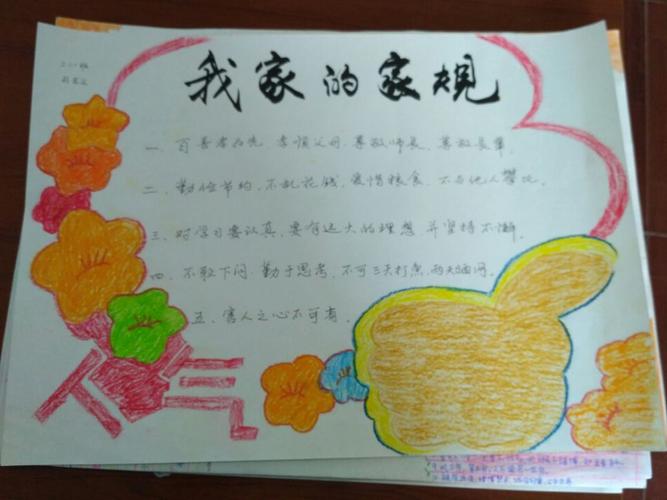 我家的家规
一、百善孝为先，孝顺父母，尊敬师长，尊敬长辈。
二、勤俭节约，不乱花钱，爱惜粮食，不与他人攀比。
三、对学习要认真，要有远大的理想，并坚持不懈。
四、不耻下问，勤于思考，不可三天打鱼，两天晒网。
五、害人之心不可有。